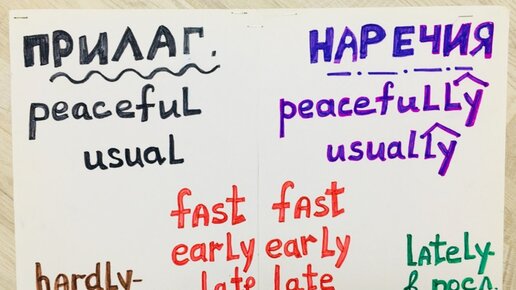 ПРИЛАГ. НАРЕЧИЯ
peaceful peacefully
usual usually
fast fast
early early
hardly- late late lately-
в посл.